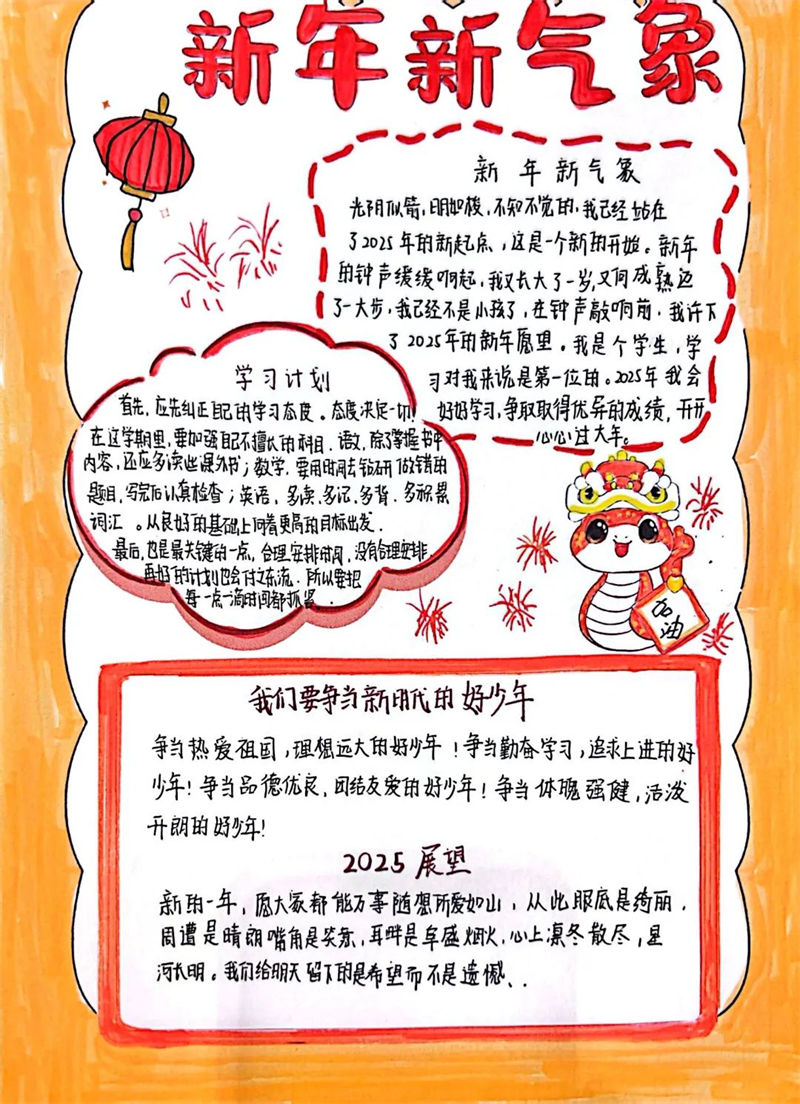 新年新气象
新年新气象
光阴似箭,日月如梭,不知不觉的,我已经站在
了2025年的新起点,这是一个新的开始。新年
的钟声缓缓响起,我又长大了一岁,又向成熟迈
了一大步,我已经不是小孩了,在钟声敲响前,我许下
了2025年的新年愿望。我是个学生,学
习对我来说是第一位的。2025年我会
好好学习,争取取得优异的成绩,开开
心心过大年。
学习计划
首先,应先纠正自己的学习态度。态度决定一切!
在这学期里,要加强自己不擅长的科目.语文,除了掌握书中
内容,还应多读些课外书;数学,要用时间去钻研做错的
题目,写完后认真检查;英语,多读、多记、多背、多积累
词汇。从良好的基础上向着更高的目标出发.
最后,也是最关键的一点,合理安排时间,没有合理安排,
再好的计划也会付之东流.所以要把
每一点一滴时间都抓紧.
加油
我们要争当新时代的好少年
争当热爱祖国,理想远大的好少年!争当勤奋学习,追求上进的好
少年!争当品德优良,团结友爱的好少年!争当体魄强健,活泼
开朗的好少年!
2025展望
新的一年,愿大家都能万事随想所爱如山,从此眼底是绮丽.
周遭是晴朗嘴角是笑意,耳畔是阜盛烟火,心上凛冬散尽,星
河长明。我们给明天留下的是希望而不是遗憾、.